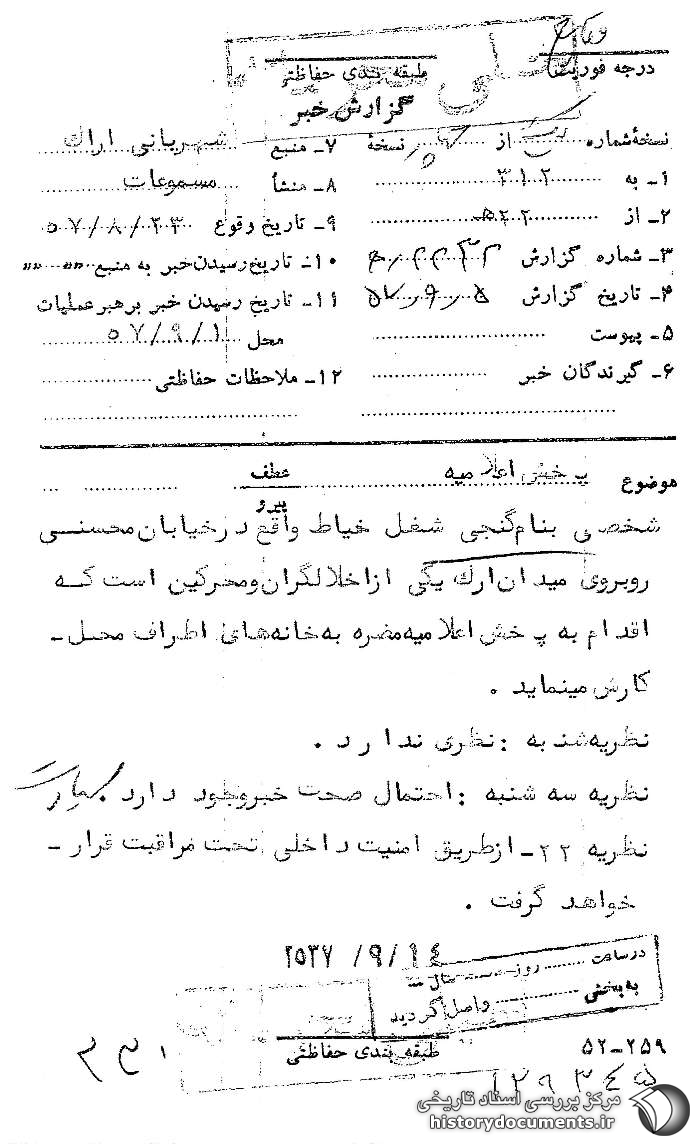 درجه فوریت
طبقه بندی حفاظتی
گزارش خبر
نسخهٔ شماره از نسخهٔ
۱ـ به ۳۱۲
۲ـ از
۳ـ شماره گزارش
۴ـ تاریخ گزارش
۵ـ پیوست
۶ـ گیرندگان خبر
۷ـ منبع شهربانی اراک
۸ـ منشأ مسموعات
۹ـ تاریخ وقوع ۵۷/۸/۲۳
۱۰ـ تاریخ رسیدن خبر به منبع " "
۱۱ـ تاریخ رسیدن خبر برهبر عملیات
محل ۵۷/۹/۱
۱۲ـ ملاحظات حفاظتی
موضوع پخش اعلامیه عطف
پیرو
شخصی بنام گنجی شغل خیاط واقع درخیابان محسنی
روبروی میدان ارک یکی ازاخلالگران ومحرکین است که
اقدام به پخش اعلامیه مضره به خانه های اطراف محل ـ
کارش مینماید .
نظریه شنبه : نظری ندارد .
نظریه سه شنبه : احتمال صحت خبروجود دارد .
نظریه ۲۲ـ ازطریق امنیت داخلی تحت مراقبت قرار ـ
خواهد گرفت .
۲۵۳۷ /۹/۱۴
در ساعت روز سال
به بخش واصل گردید
طبقه بندی حفاظتی
۵۲-۲۵۹
مرکز بررسی اسناد تاریخی
historydocuments.ir